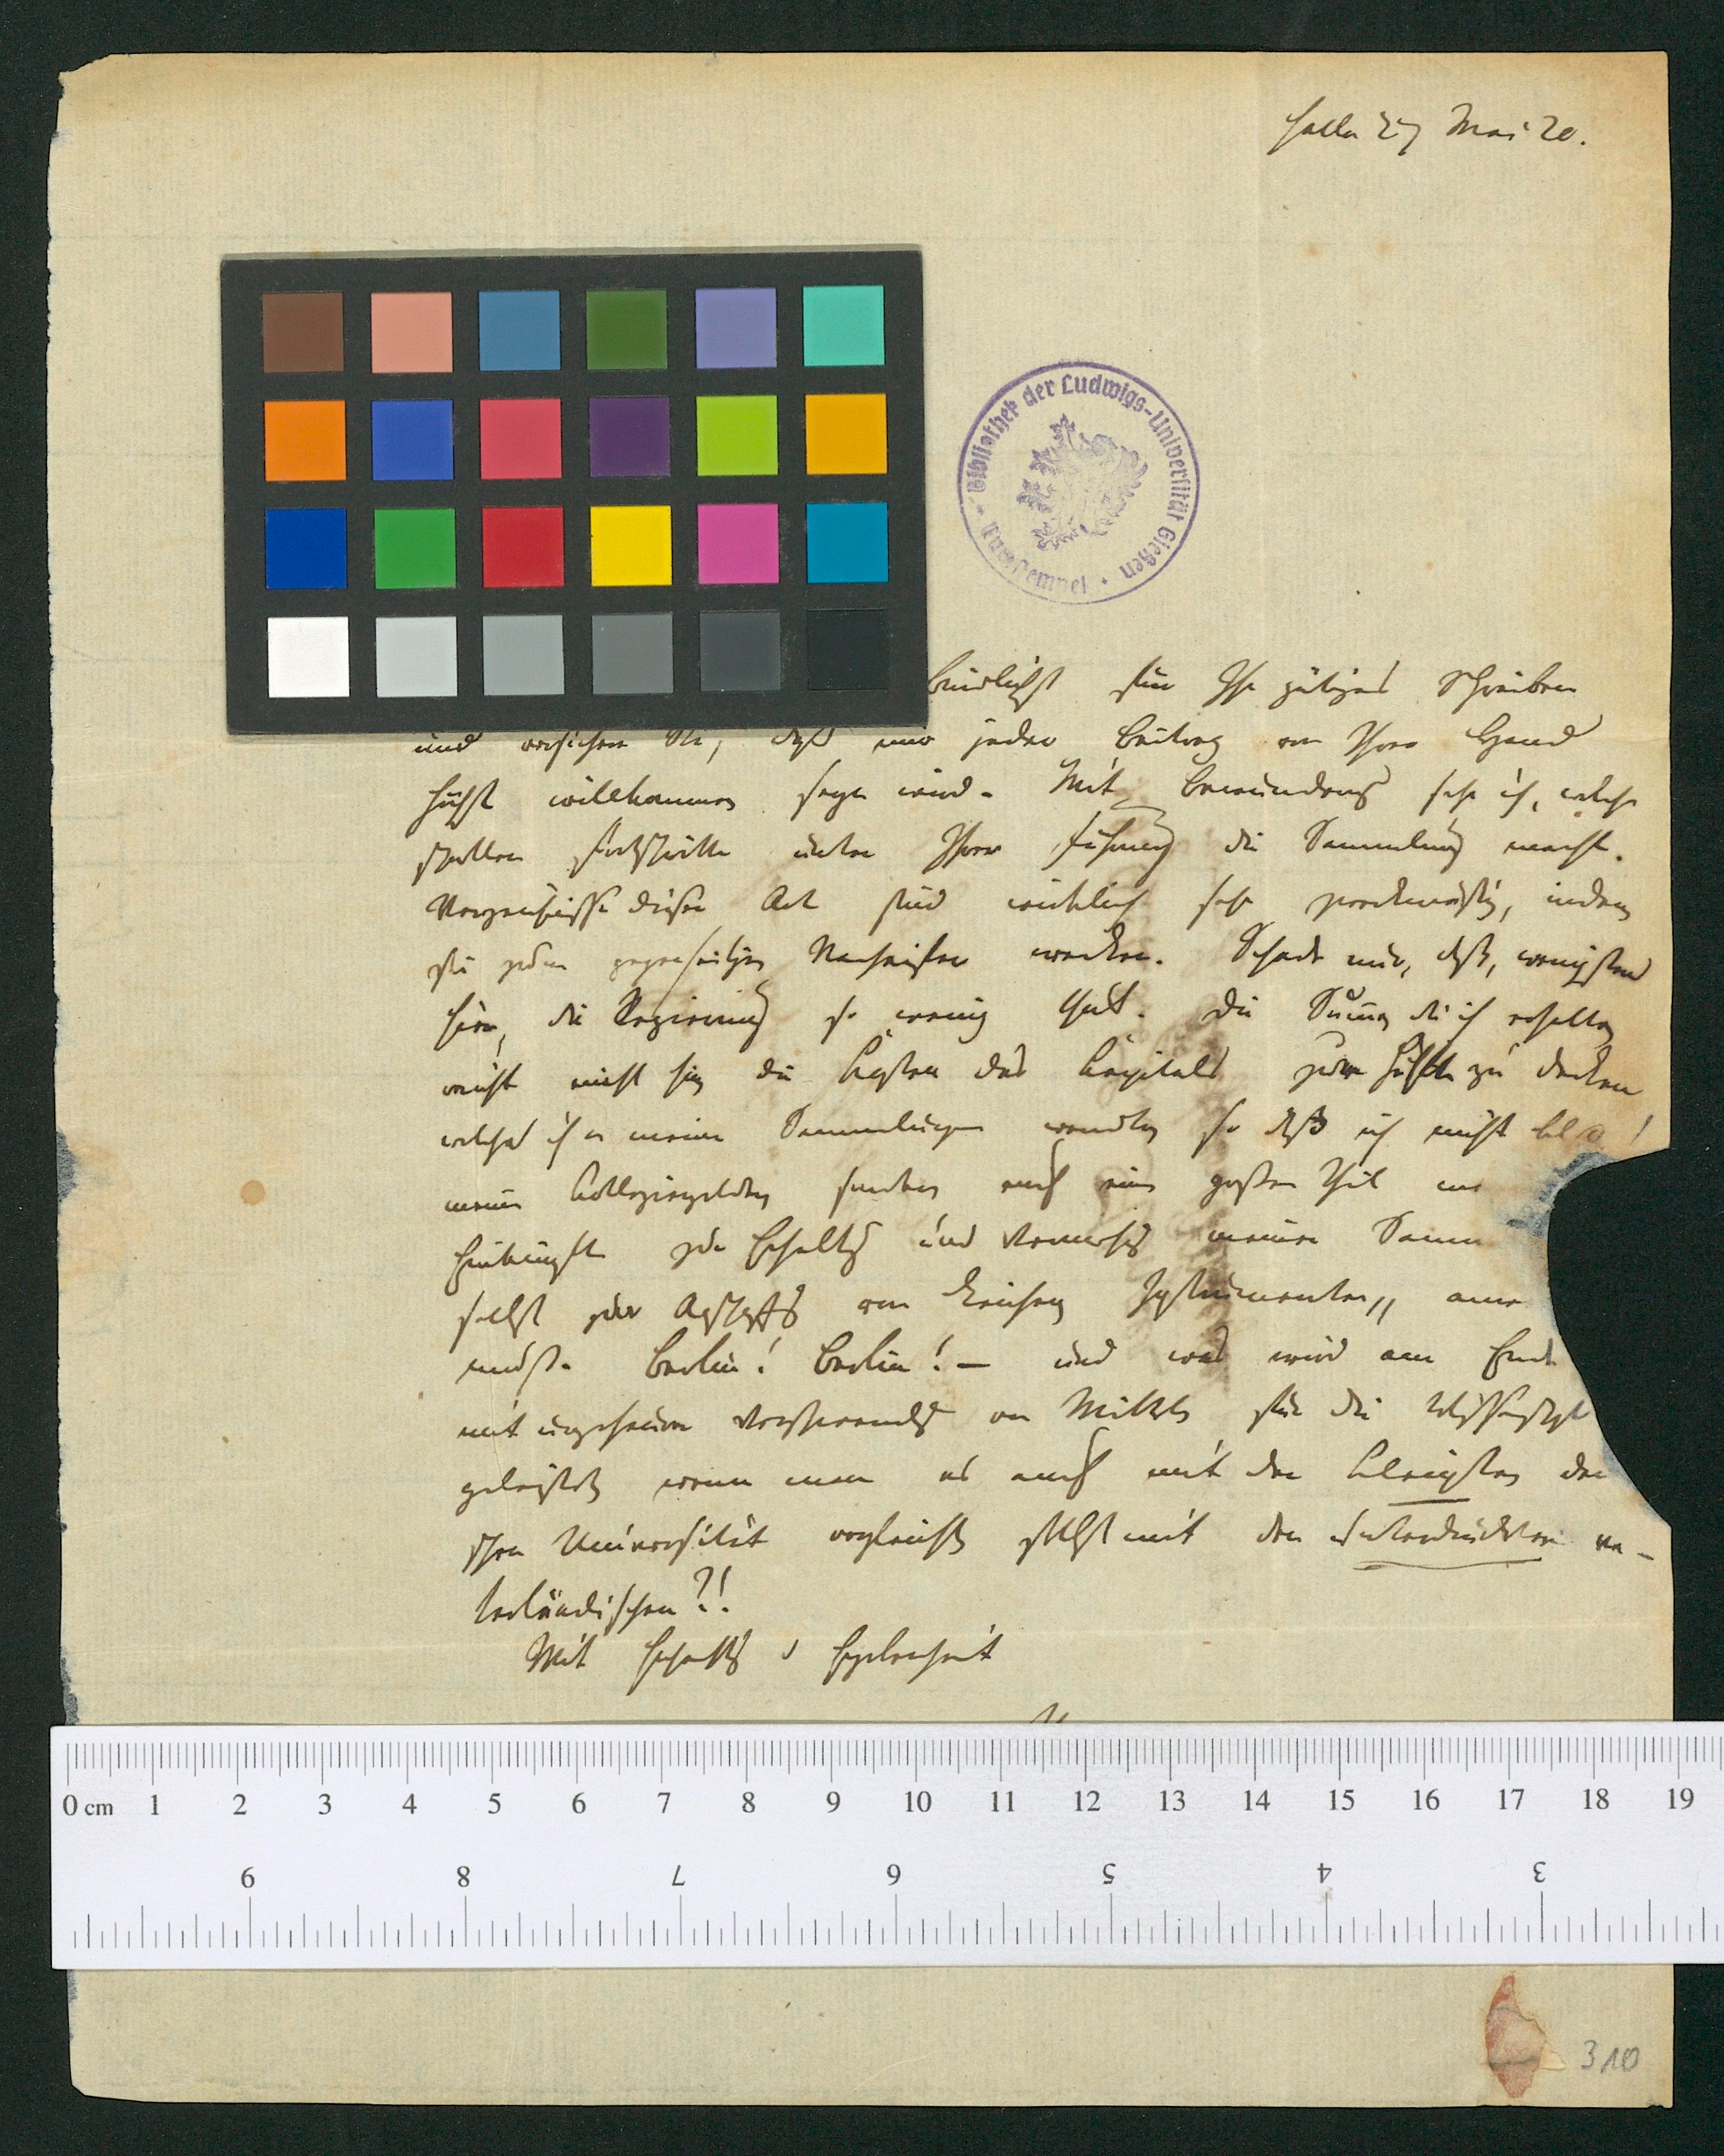 Halle 27 Mai 20.
Bibliothek der Ludwigs-Universität Gießen
bindlichst für Ihr gütiges Schreiben
und versichere Sie, daß mir jeder Beitrag von Ihrer Hand
höchst willkommen seyn wird. Mit Bewunderung sehe ich, welche
schnellen Fortschritte unter Ihrer Führung die Sammlung macht.
Verzeichnisse dieser Art sind wirklich sehr zweckmäßig, indem
sie zum gegenseitigen Nacheifern wecken. Schade nur, daß, wenigstens
hier, die Regierung so wenig thut. Die Summe die ich erhalte
reicht nicht hin die Kosten des Kapitals zur Hälfte zu decken
welches ich an meine Sammlungen wandte, so daß ich nicht blos
meine Kollegiengelder sondern auch einen großen Theil
Einkünfte zur Erhaltung und Vermehrung meiner Samm
selbst zur von Instrumenten,
mußte. Berlin! Berlin! — und was wird am Ende
mit ungeheurer Verschwendung von Mitteln für die Wissenschaft
geleistet, wenn man es auch mit der kleinsten
schen Universität vergleicht, selbst mit den unterdrückten va-
terländischen?!
Mit Hochachtung u Ergebenheit
0 cm 1 2 3 4 5 6 7 8 9 10 11 12 13 14 15 16 17 18 19
9 8 7 6 5 4 3
310